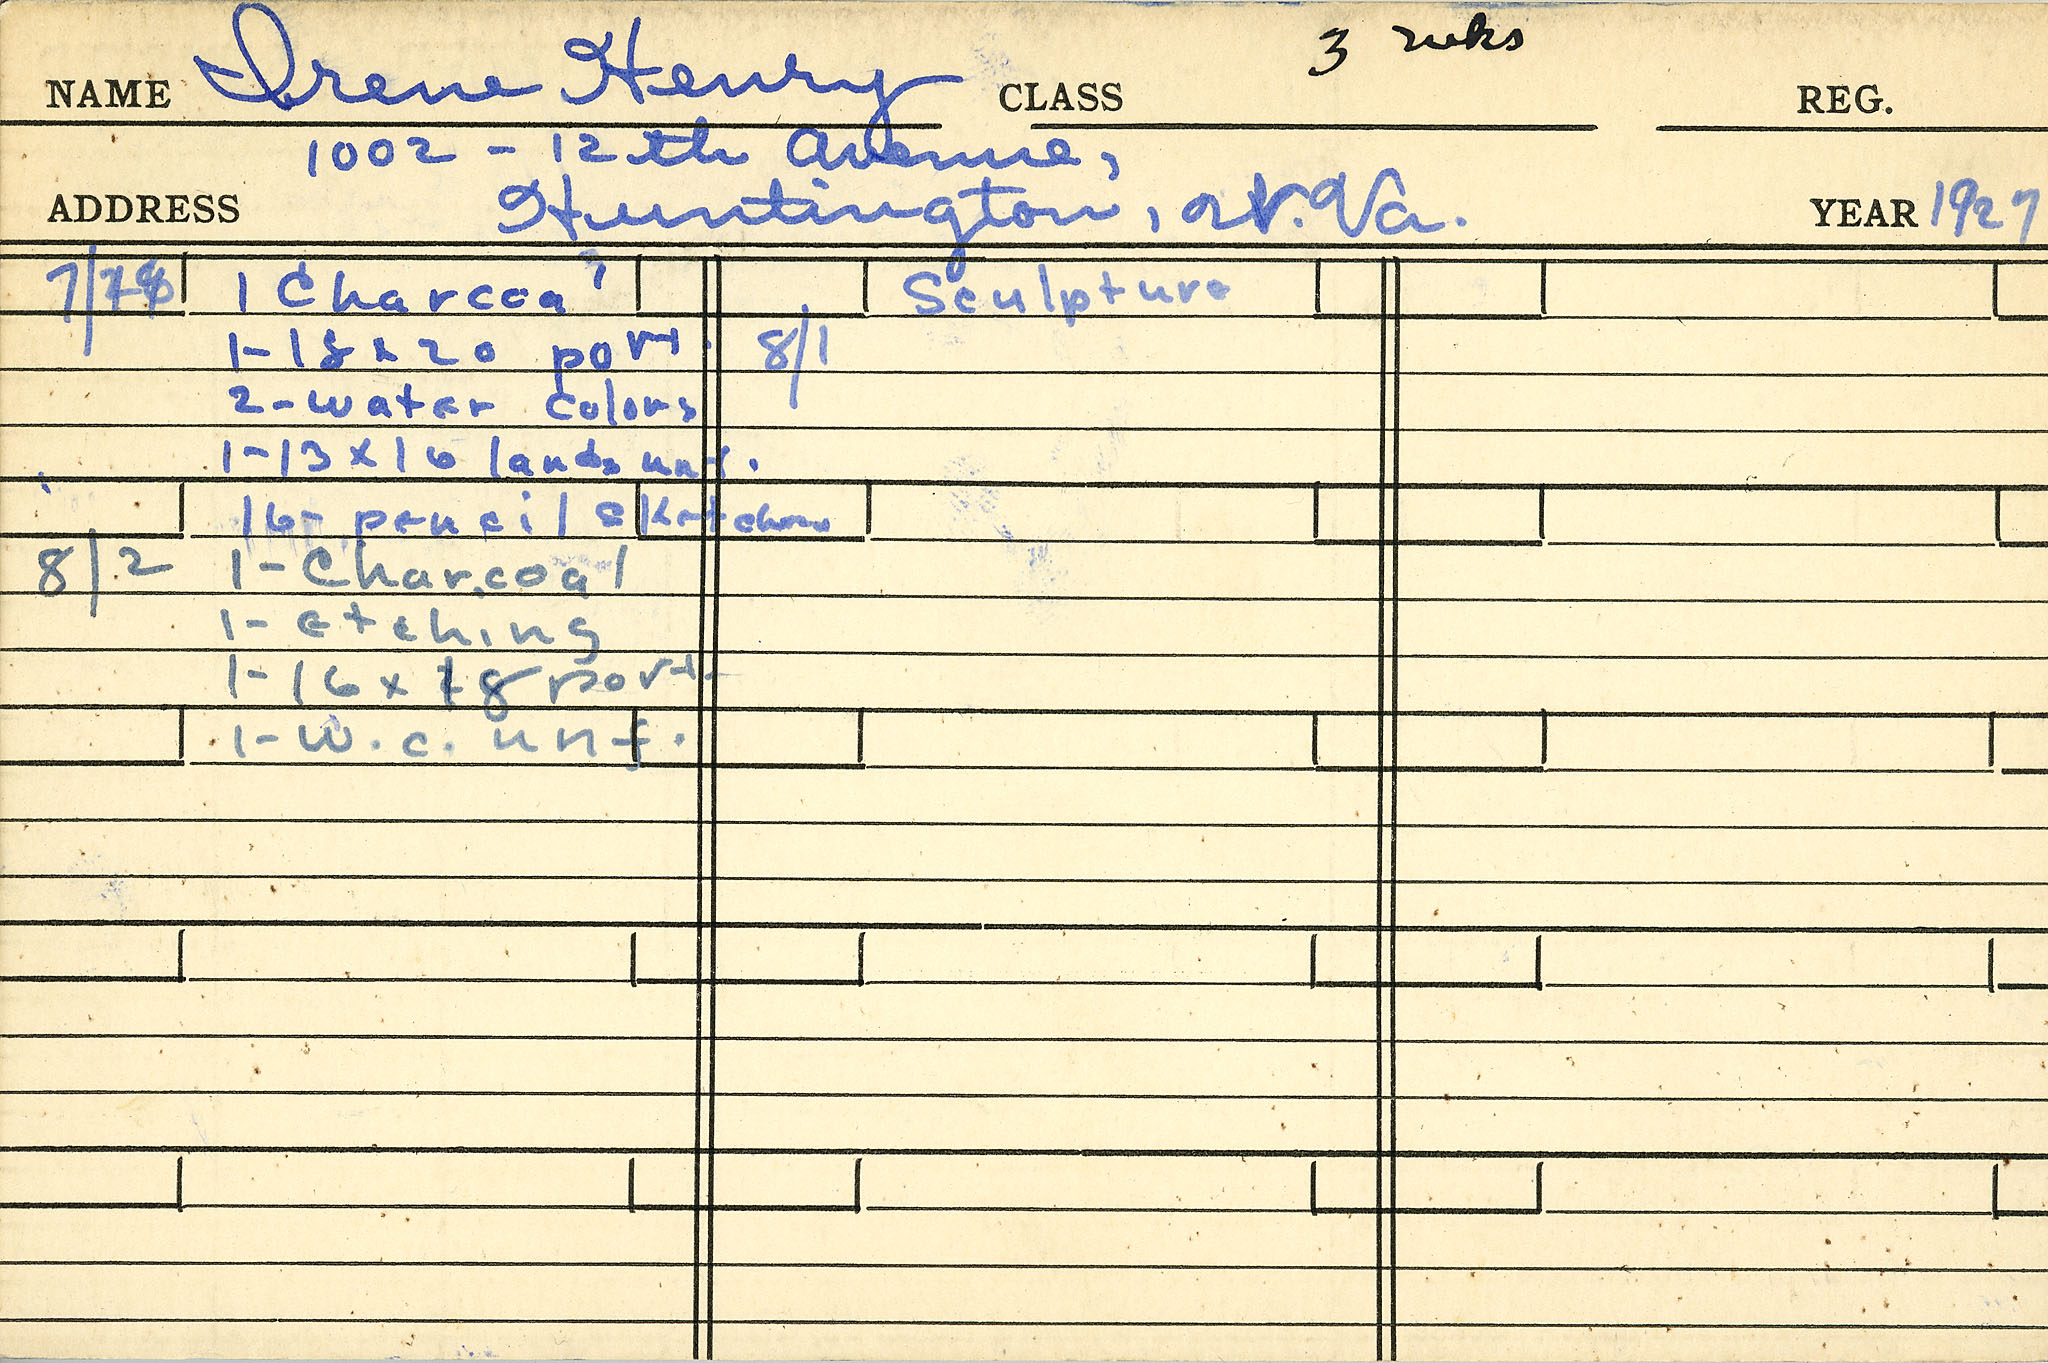 NAME Irene Henry CLASS 3 wks REG.
1002 - 12th Avenue,
ADDRESS Huntington, W. Va. YEAR 1927
7/28 1 Charcoal Sculpture
1-18x20 port. 8/1
2-water colors
1-13x16 lands unf.
16-pencil sketches
8/2 1-Charcoal
1-etching
1-16x18 port.
1-W.c. unf.